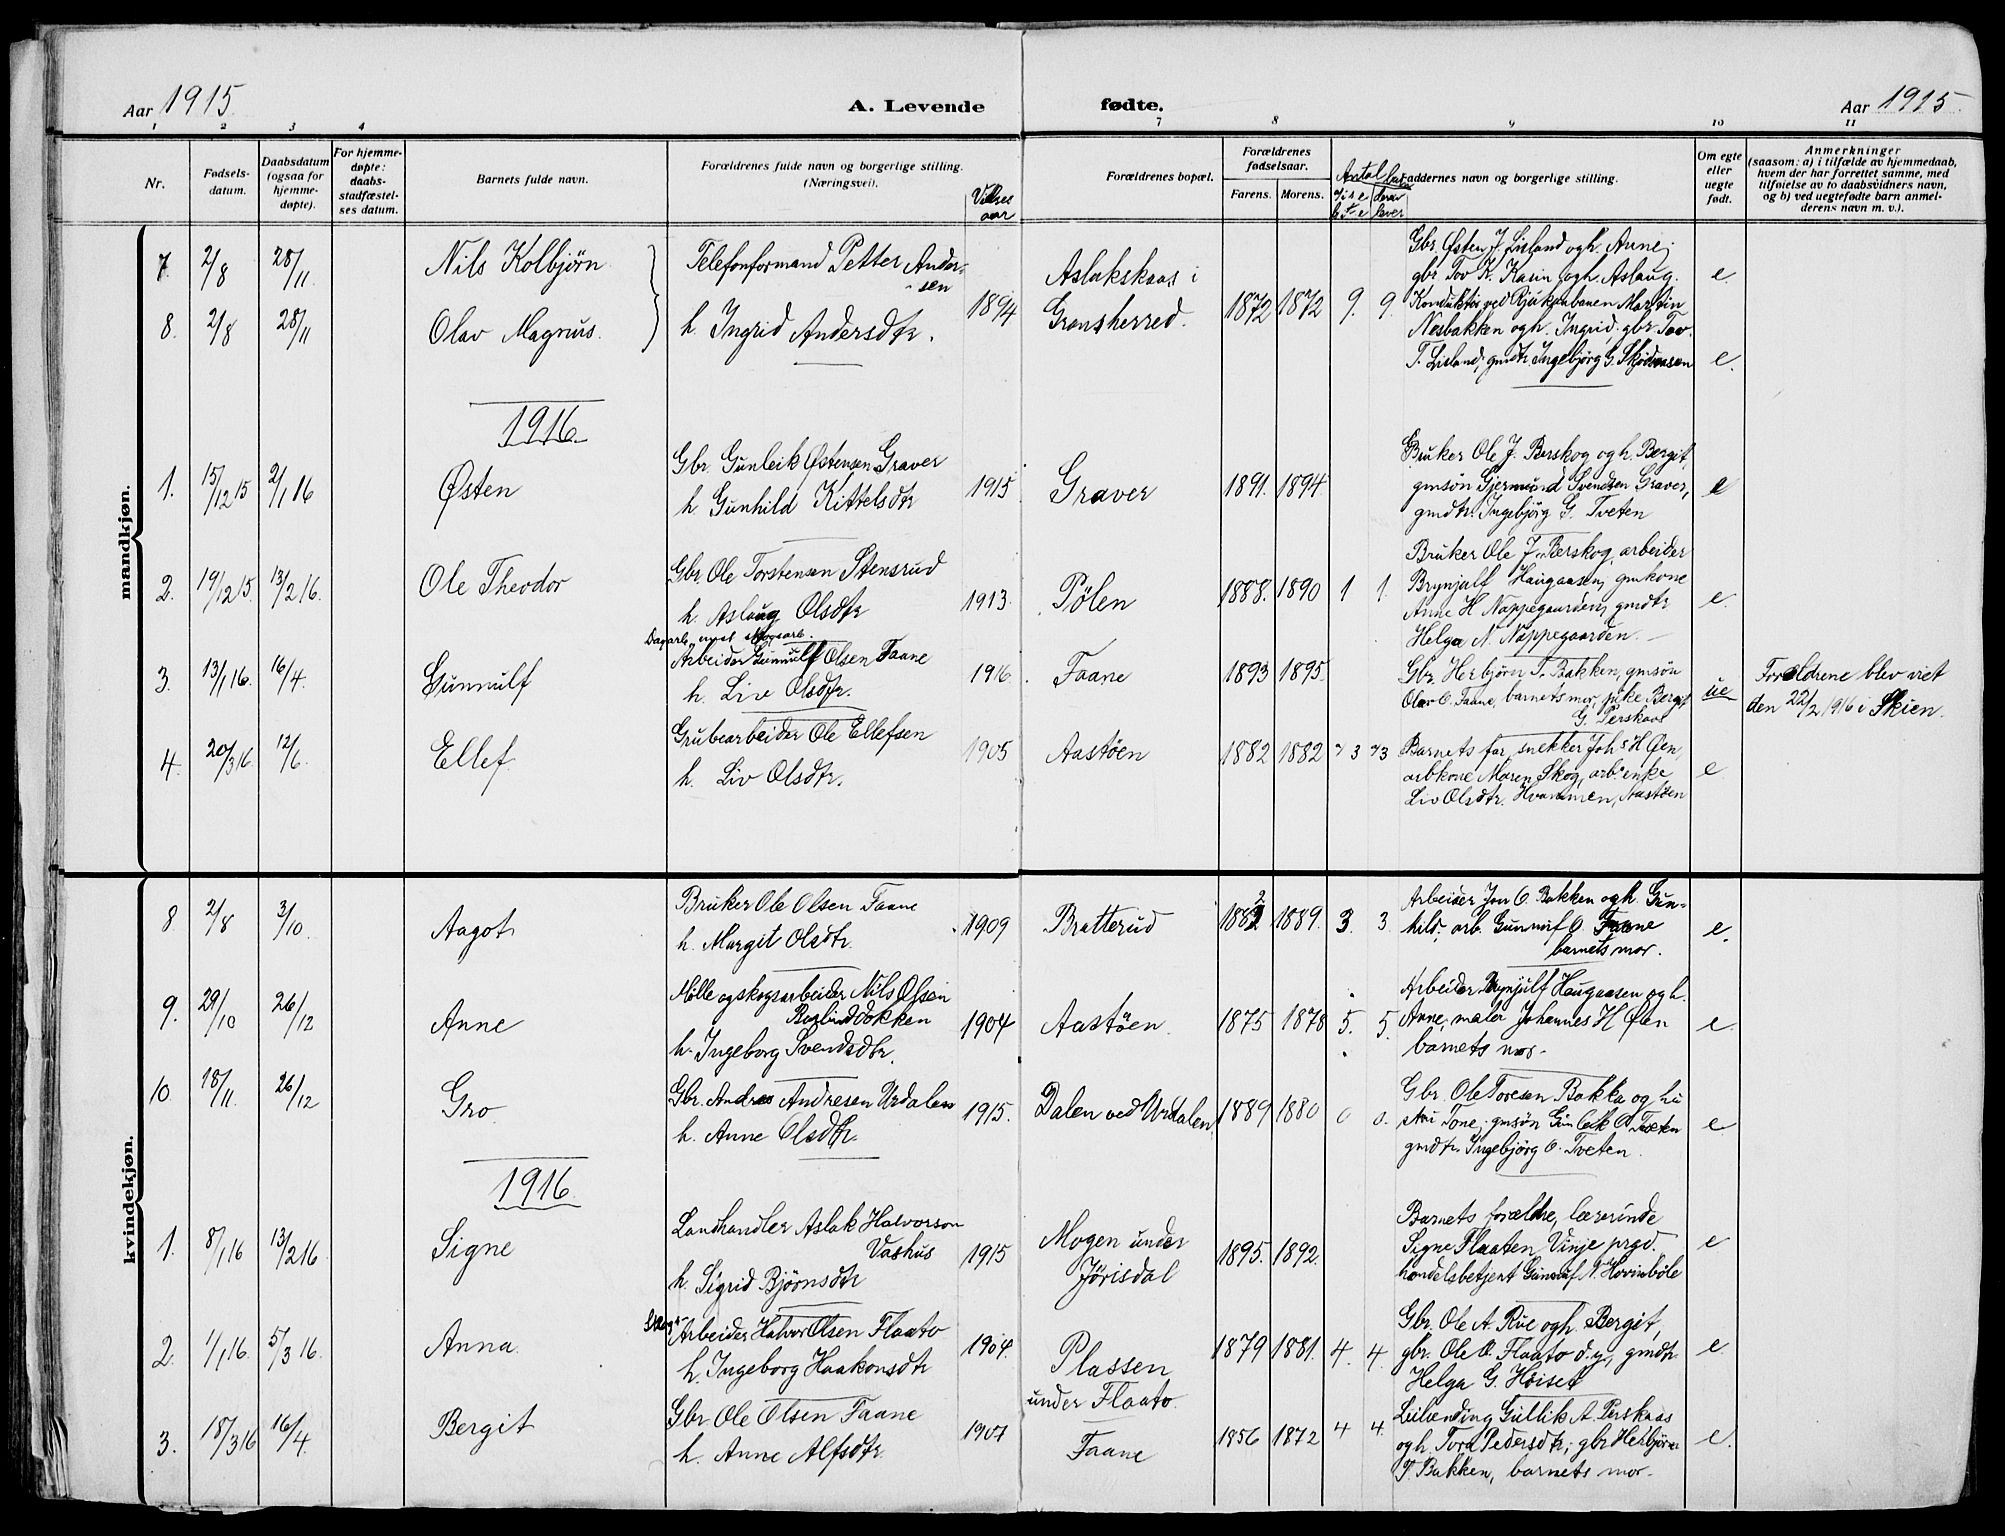 Aar 1915.
A. Levende fødte.
Aar 1915.
1 2 3 4 7 8 9 10 11
Nr.
Fødsels-datum.
Daabsdatum (ogsaa for hjemme-døpte).
For hjemme-døpte: daabs-stadfæstel-ses datum.
Barnets fulde navn.
Forældrenes fulde navn og borgerlige stilling. (Næringsvei).
Vielses aar
Forældrenes bopæl.
Forældrenes fødselsaar.
Farens. Morens.
Antal
Faddernes navn og borgerlige stilling.
Om egte eller uegte født.
Anmerkninger
(saasom: a) i tilfælde av hjemmedaab, hvem der har forrettet samme, med tilføielse av to daabsvidners navn, og b) ved uegtefødte barn anmel-derens navn m. v.).
mandkjøn.
7. 2/8 28/11 Nils Kolbjørn
Telefonformand Petter Ander-
sen
8. 2/8 28/11 Olav Magnus.
h. Ingrid Andersdtr.
1894
Aslakskaas i
Gransherred.
1872 1872 9. 9.
Gbr. Østen J. Lisland og h. Anne;
gbr. Tov K. Kasin og h. Aslaug.
Konduktør ved Rjukanbanen Martin
Nesbakken og h. Ingrid; gbr. Tov
T. Lisland; gmdtr. Ingebjørg G.
e
e.
1916.
1. 15/12 15 2/1 16 Østen
Gbr. Gunleik Østensen Graver
h. Gunhild Kittelsdtr
1915
Graver
1891. 1894.
Bruker Ole J. Berskog og h. Bergit,
gmsøn Gjermund Svendsen Graver,
gmdtr. Ingebjörg G. Tveten
e
2. 19/12 15. 13/2 16. Ole Theodor
Gbr. Ole Torstensen Stensrud
h. Aslaug Olsdtr
1913.
Pølen
1888. 1890 1 1.
Bruker Ole J. Berskog, arbeider
Brynjulf Haugaasen, gmkone
Anne H Nappegaarden, gmdtr
Helga N. Nappegaarden.
e.
3. 13/1 16. 16/4. Gunnulf
Dagarb. mest skogsarb.
Arbeider Gunnulf Olsen Faane
h. Liv Olsdtr.
1916.
Faane
1893 1895.
Gbr. Herbjörn T. Bakken, gmsön
Olav O. Faane, barnets mor, pike Bergit
G. Perskaas
ue
Forældrene blev viet
den 22/2 1916 i Skien.
4. 20/3 16. 12/6. Ellef.
Grubearbeider Ole Ellefsen
h. Liv Olsdtr.
1905
Aastöen
1882 1882 3 3
Barnets far, snekker Johs H Øen,
arbkone Maren Skog, arbs enke
Liv Olsdtr. Hvammen, Aastöen
e
kvindekjøn.
8 2/8 3/10. Aagot
Bruker Ole Olsen Faane
h. Margit Olsdtr.
1909
Bratterud
1882 1889. 3. 3.
Arbeider Jon O. Bakken og h. Gun-
hild, arb. Gunnulf O. Faane
barnets mor.
e.
9. 29/10 26/12 Anne
Mölle og skogsarbeider Nils Olsen
h. Ingeborg Svendsdtr.
1904
Aastöen.
1875 1878 5. 5.
Arbeider Brynjulf Haugaasen og h.
Anne, maler Johannes H Øen
barnets mor.
e
10. 18/11. 26/12 Gro.
Gbr. Andres Andresen Urdalen
h. Anne Olsdtr.
1915.
Dalen ved Urdalen.
1889 1880 0 0.
Gbr. Ole Toresen Bakka og hu
stru Tone, gmsøn Gunleik O. Tveten
gmdtr. Ingebjörg O. Tveten.
e
1916.
1. 8/1 16 13/2 16 Signe
Landhandler Aslak Halvorson
Vashus
h. Sigrid Bjørnsdtr
1915
Mogen under
Jörisdal
1895. 1892.
Barnets forældre, lærerinde
Signe Flaaten, Vinje prgd.
handelsbetjent Gunnulf N. Hovinböle
e
2. 1/1 16. 5/3 16. Anna.
Skogs-
Arbeider Halvor Olsen Flaato
h. Ingeborg Haakonsdtr
1904.
Plassen
under Flaato.
1879 1881. 4. 4.
Gbr. Ole A. Rue og h. Bergit,
gbr. Ole O. Flaato d.y., gmdtr.
Helga G. Höiset
e.
3. 18/3 16 16/4. Bergit
Gbr Ole Olsen Faane
h. Anne Alfsdtr.
1907
Faane
1856 1872 4 4.
Leilænding Gullik A. Perskaas
og h. Tora Pedersdtr; gbr Herbjørn
T. Bakken, barnets mor.
e.